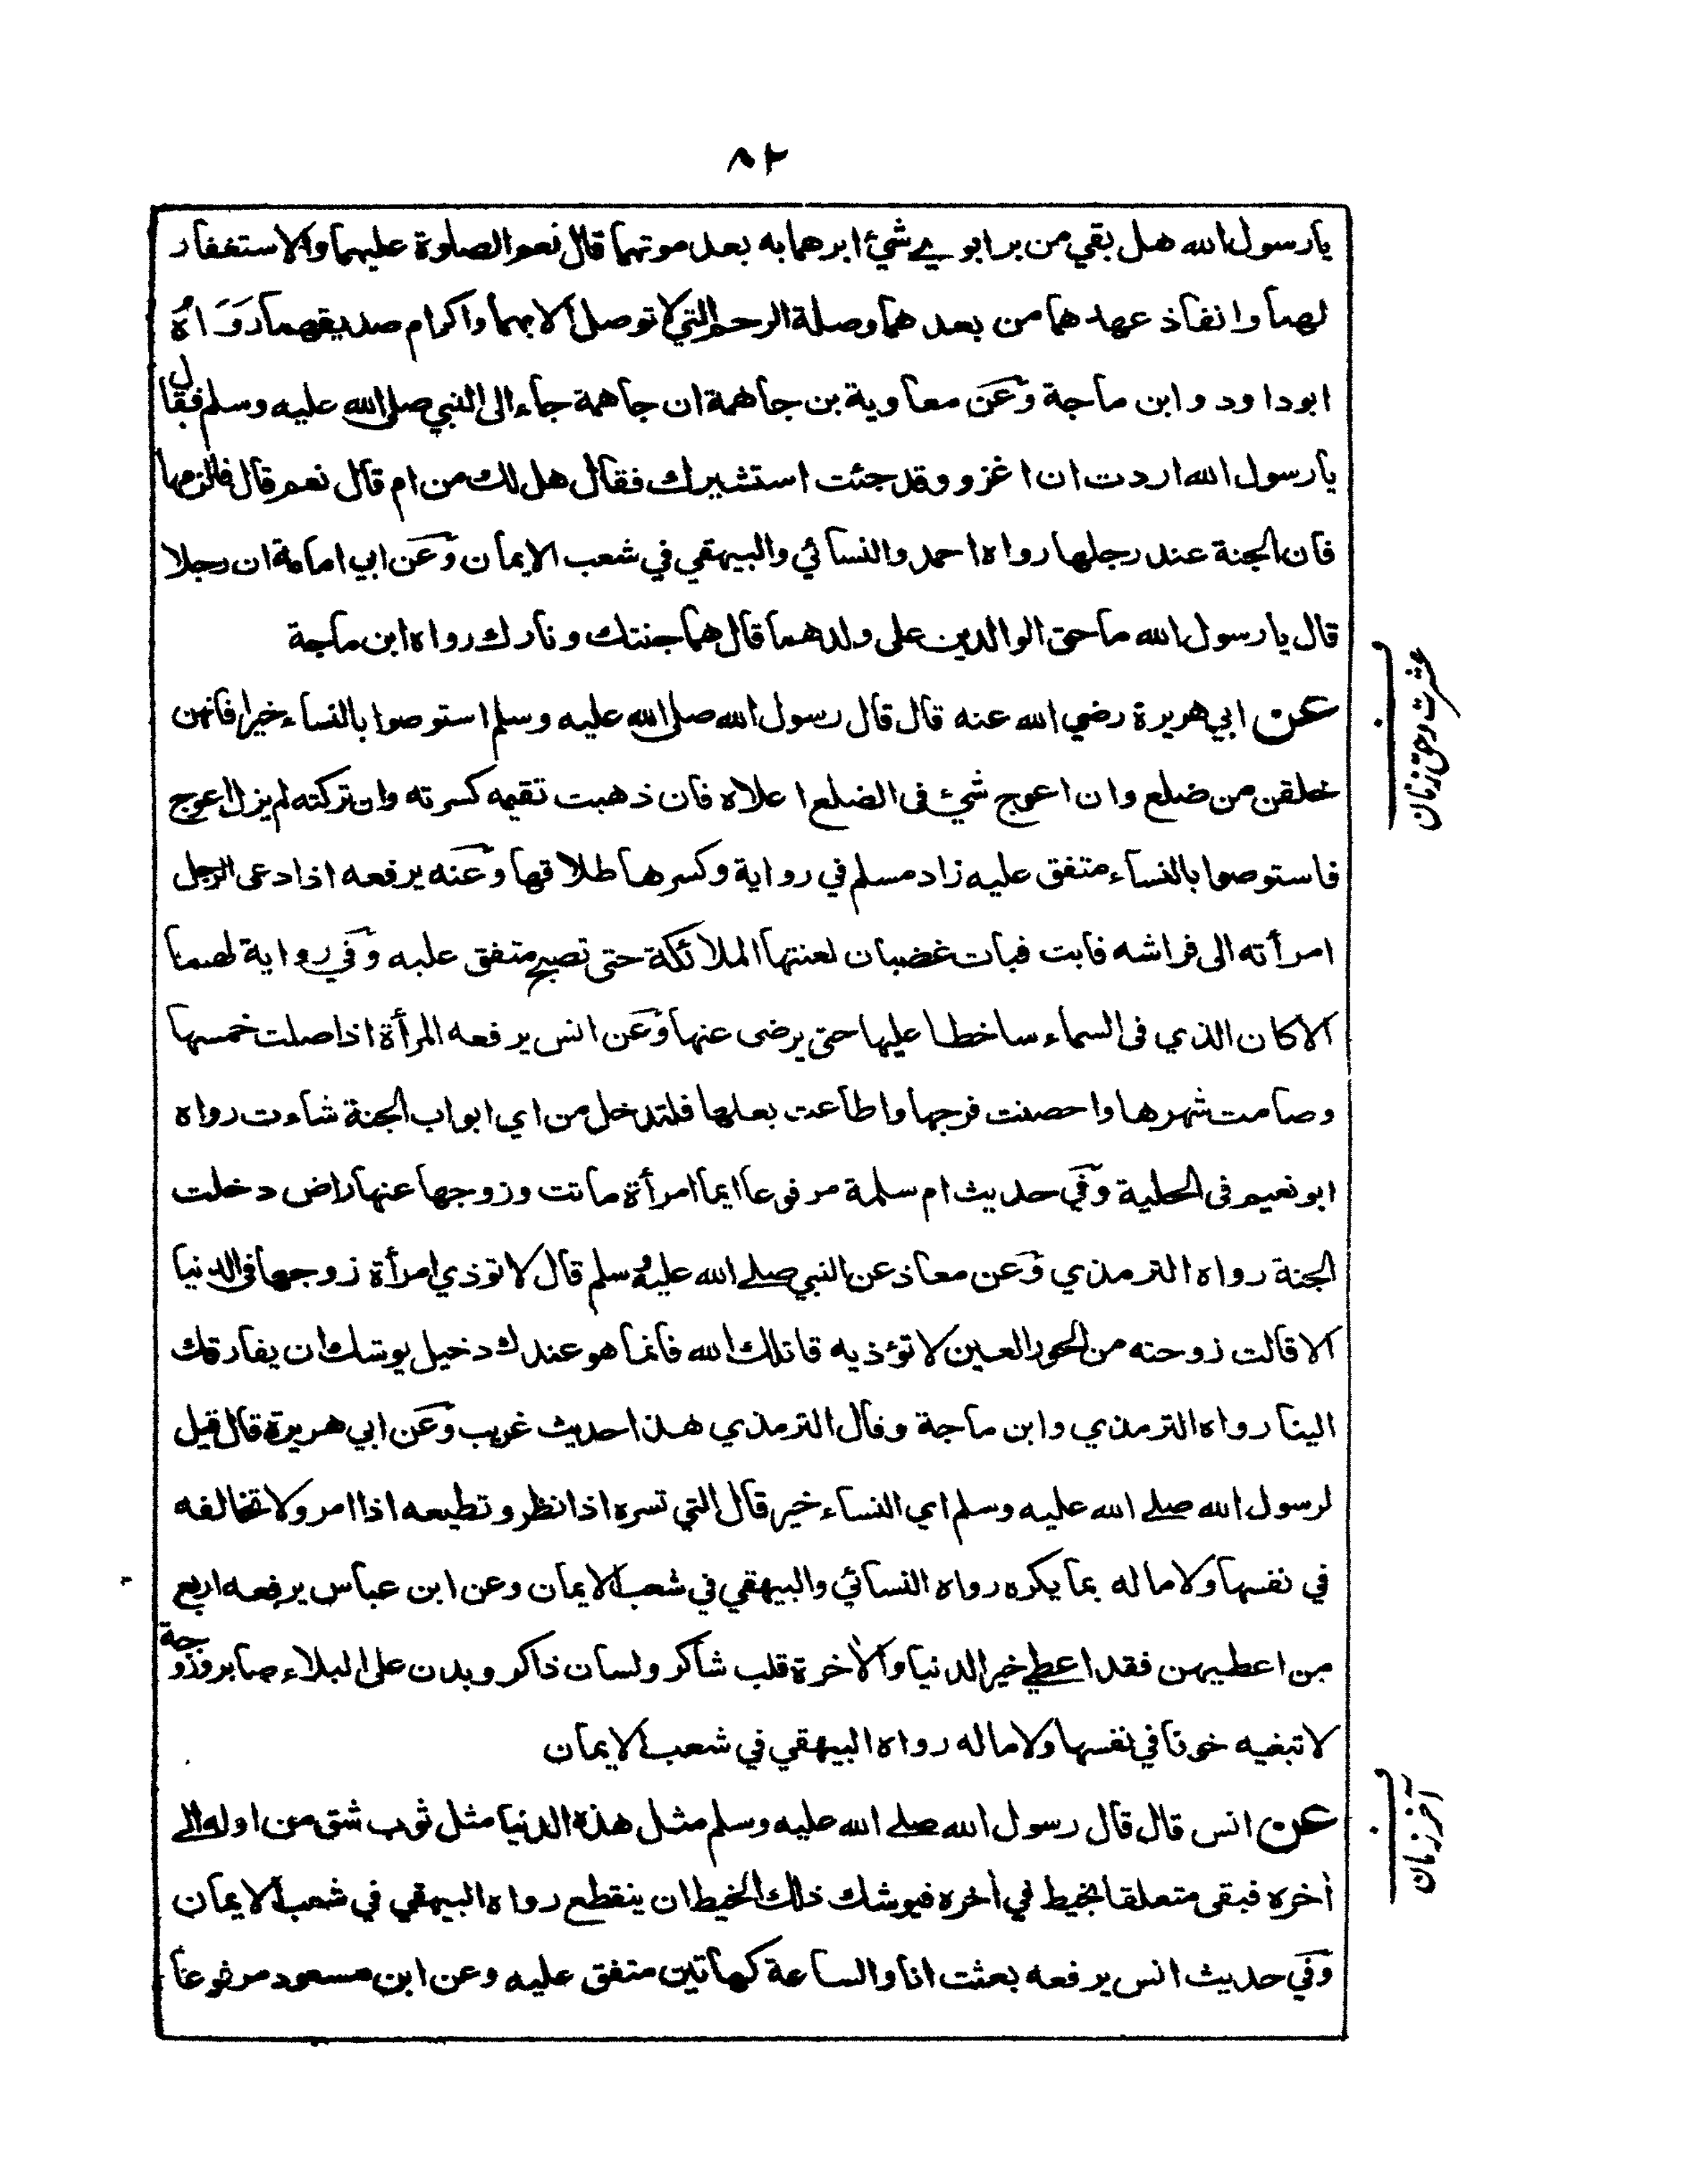 ٨٢
يارسول الله هل بقي من بر ابوي شئ ابرهمابه بعد موتهما قال نعم الصلوة عليهما والاستغفار
لهما وانفاذ عهدهما من بعدهما وصلة الرحم التي لا توصل الا بهما واكرام صديقهما رواه
ابوداود وابن ماجة وعن معاوية بن جاهمة ان جاهمة جاء الى النبي صلى الله عليه وسلم فقال
يارسول الله اردت ان اغزو وقد جئت استشيرك فقال هل لك من ام قال نعم قال فالزمها
فان الجنة عند رجلها رواه احمد والنسائي والبيهقي في شعب الايمان وعن ابي امامة ان رجلا
قال يارسول الله ما حق الوالدين على ولدهما قال هما جنتك ونارك رواه ابن ماجة
عن ابي هريرة رضي الله عنه قال قال رسول الله صلى الله عليه وسلم استوصوا بالنساء خيرا فانهن
خلقن من ضلع وان اعوج شئ فى الضلع اعلاه فان ذهبت تقيمه كسرته وان تركته لم يزل اعوج
فاستوصوا بالنساء متفق عليه زاد مسلم في رواية وكسرها طلاقها وعنه يرفعه اذا دعى الرجل
امرأته الى فراشه فابت فبات غضبان لعنتها الملائكة حتى تصبح متفق عليه وفي رواية لهما
الا كان الذي فى السماء ساخطا عليها حتى يرضى عنها وعن انس يرفعه المرأة اذا صلت خمسها
وصامت شهرها واحصنت فرجها واطاعت بعلها فلتدخل من اي ابواب الجنة شاءت رواه
ابو نعيم فى الحلية وفي حديث ام سلمة مرفوعا ايما امرأة ماتت وزوجها عنها راض دخلت
الجنة رواه الترمذي وعن معاذ عن النبي صلے الله عليه وسلم قال لا توذي امرأة زوجها فى الدنيا
الا قالت زوحته من الحور العين لا تؤذيه قاتلك الله فانما هو عندك دخيل يوشك ان يفارقك
الينا رواه الترمذي وابن ماجة وقال الترمذي هذا حديث غريب وعن ابي هريرة قال قيل
لرسول الله صلے الله عليه وسلم اي النساء خير قال التي تسره اذا نظر وتطيعه اذا امر ولا تخالفه
في نفسها ولا ماله بما يكره رواه النسائي والبيهقي في شعب الايمان وعن ابن عباس يرفعه اربع
من اعطيهن فقد اعطي خير الدنيا والأخرة قلب شاكر ولسان ذاكر وبدن على البلاء صابر وزوجة
لا تبغيه خونا في نفسها ولا ماله رواه البيهقي في شعب الايمان
عن انس قال قال رسول الله صلے الله عليه وسلم مثل هذه الدنيا مثل ثوب شق من اوله الے
أخره فبقى متعلقا بخيط في أخره فيوشك ذلك الخيط ان ينقطع رواه البيهقي في شعب الايمان
وفي حديث انس يرفعه بعثت انا والساعة كهاتين متفق عليه وعن ابن مسعود مرفوعا
عشرت وحق زنان
آخر زمان